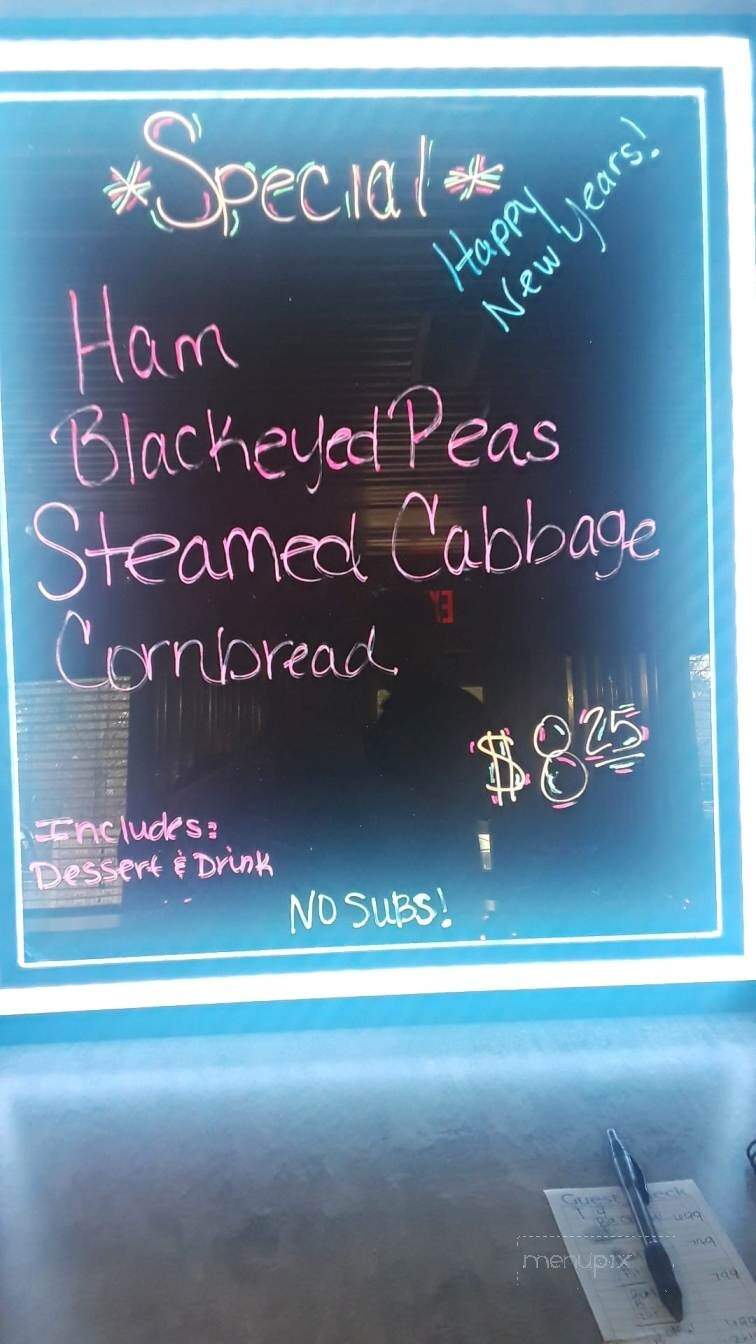 *Special*
Happy
New Years!
Ham
Blackeyed Peas
Steamed Cabbage
Cornbread
$8 25
Includes:
Dessert & Drink
NO SUBS!
EX
Guest
menupix